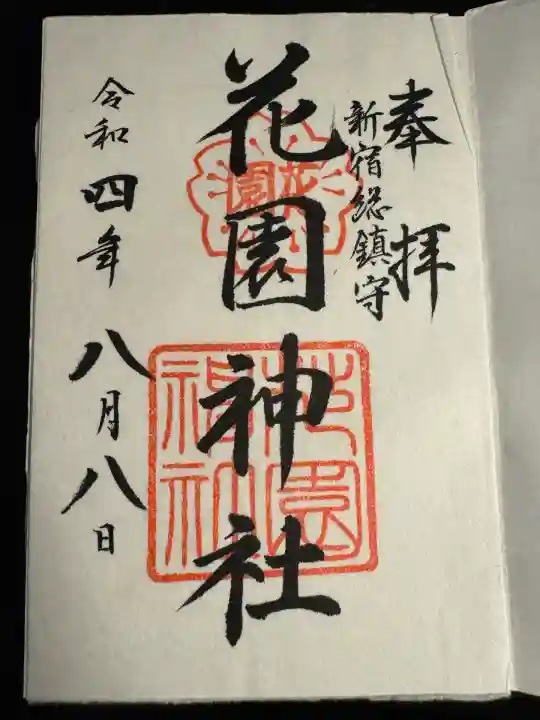 奉拝
新宿総鎮守
花園神社
花園
花園神社
令和四年
八月八日